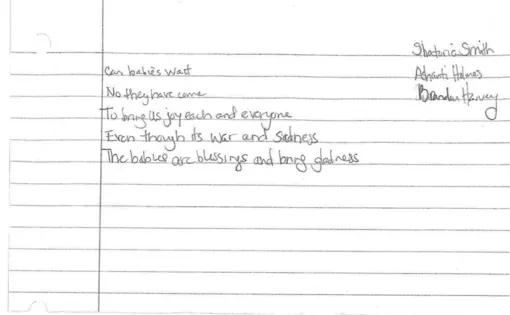 Smith
Can babies wait
Ashanti Holmes
No they have come
Brandon Harvey
To bring us joy each and everyone
Even though its war and sadness
The babies are blessings and bring gladness